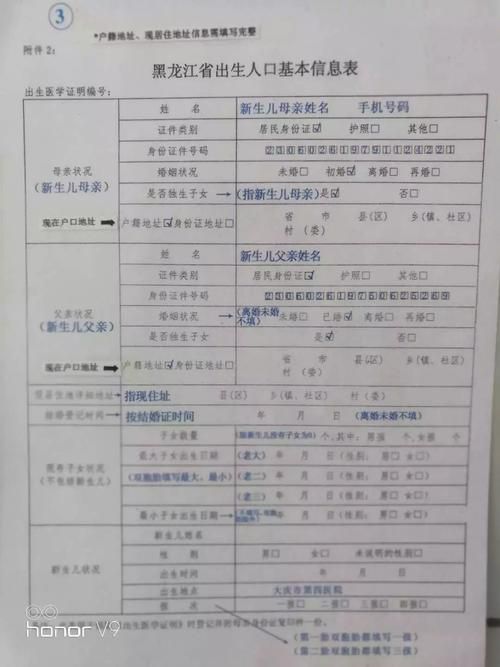 ③
*户籍地址、现居住地址信息需填写完整
附件2:
黑龙江省出生人口基本信息表
出生医学证明编号:
姓 名 新生儿母亲姓名 手机号码
证件类别 居民身份证☑ 护照□ 其他□
母亲状况 身份证件号码
(新生儿母亲) 婚姻状况 未婚□ 初婚☑ 离婚□ 再婚□
是否独生子女 → (指新生儿母亲)是☑ 否□
现在户口地址 → 户籍地址☑身份证地址□ 省 市 县(区) 乡(镇、社区)
村(委)
姓 名 新生儿父亲姓名
证件类别 居民身份证☑ 护照□ 其他□
身份证件号码
父亲状况 婚姻状况 → (离婚未婚不填) 未婚□ 已婚☑ 离婚□ 再婚□
(新生儿父亲) 是否独生子女 是☑ 否□
现在户口地址 → 户籍地址☑身份证地址□ 省 市 县(区) 乡(镇、社区)
村(委)
现居住地详细地址→ 指现住址 县(区) 乡(镇、社区) 村(委)
结婚登记时间→ 按结婚证时间 年 月 日 (离婚未婚不填)
子女数量 (除新生儿没有子女为0)个,其中:男孩 个,女孩 个
最大子女出生日期 (老大) 年 月 日(性别: 男□ 女□)
现存子女状况
(不包括新生儿) (双胞胎填写最大、最小) (老二) 年 月 日(性别: 男□ 女□)
(老三) 年 月 日(性别: 男□ 女□)
最小子女出生日期→ 年 月 日(性别: 男□ 女□)
新生儿姓名
性 别 男□ 女□ 未说明的性别□
新生儿状况 出生时间 年 月 日
出生地点 大庆市第四医院
孩 次 一孩□ 二孩□ 三孩□ 四孩□
(第一胎双胞胎都填写一孩)
(第二胎双胞胎都填写三孩)
honor V9